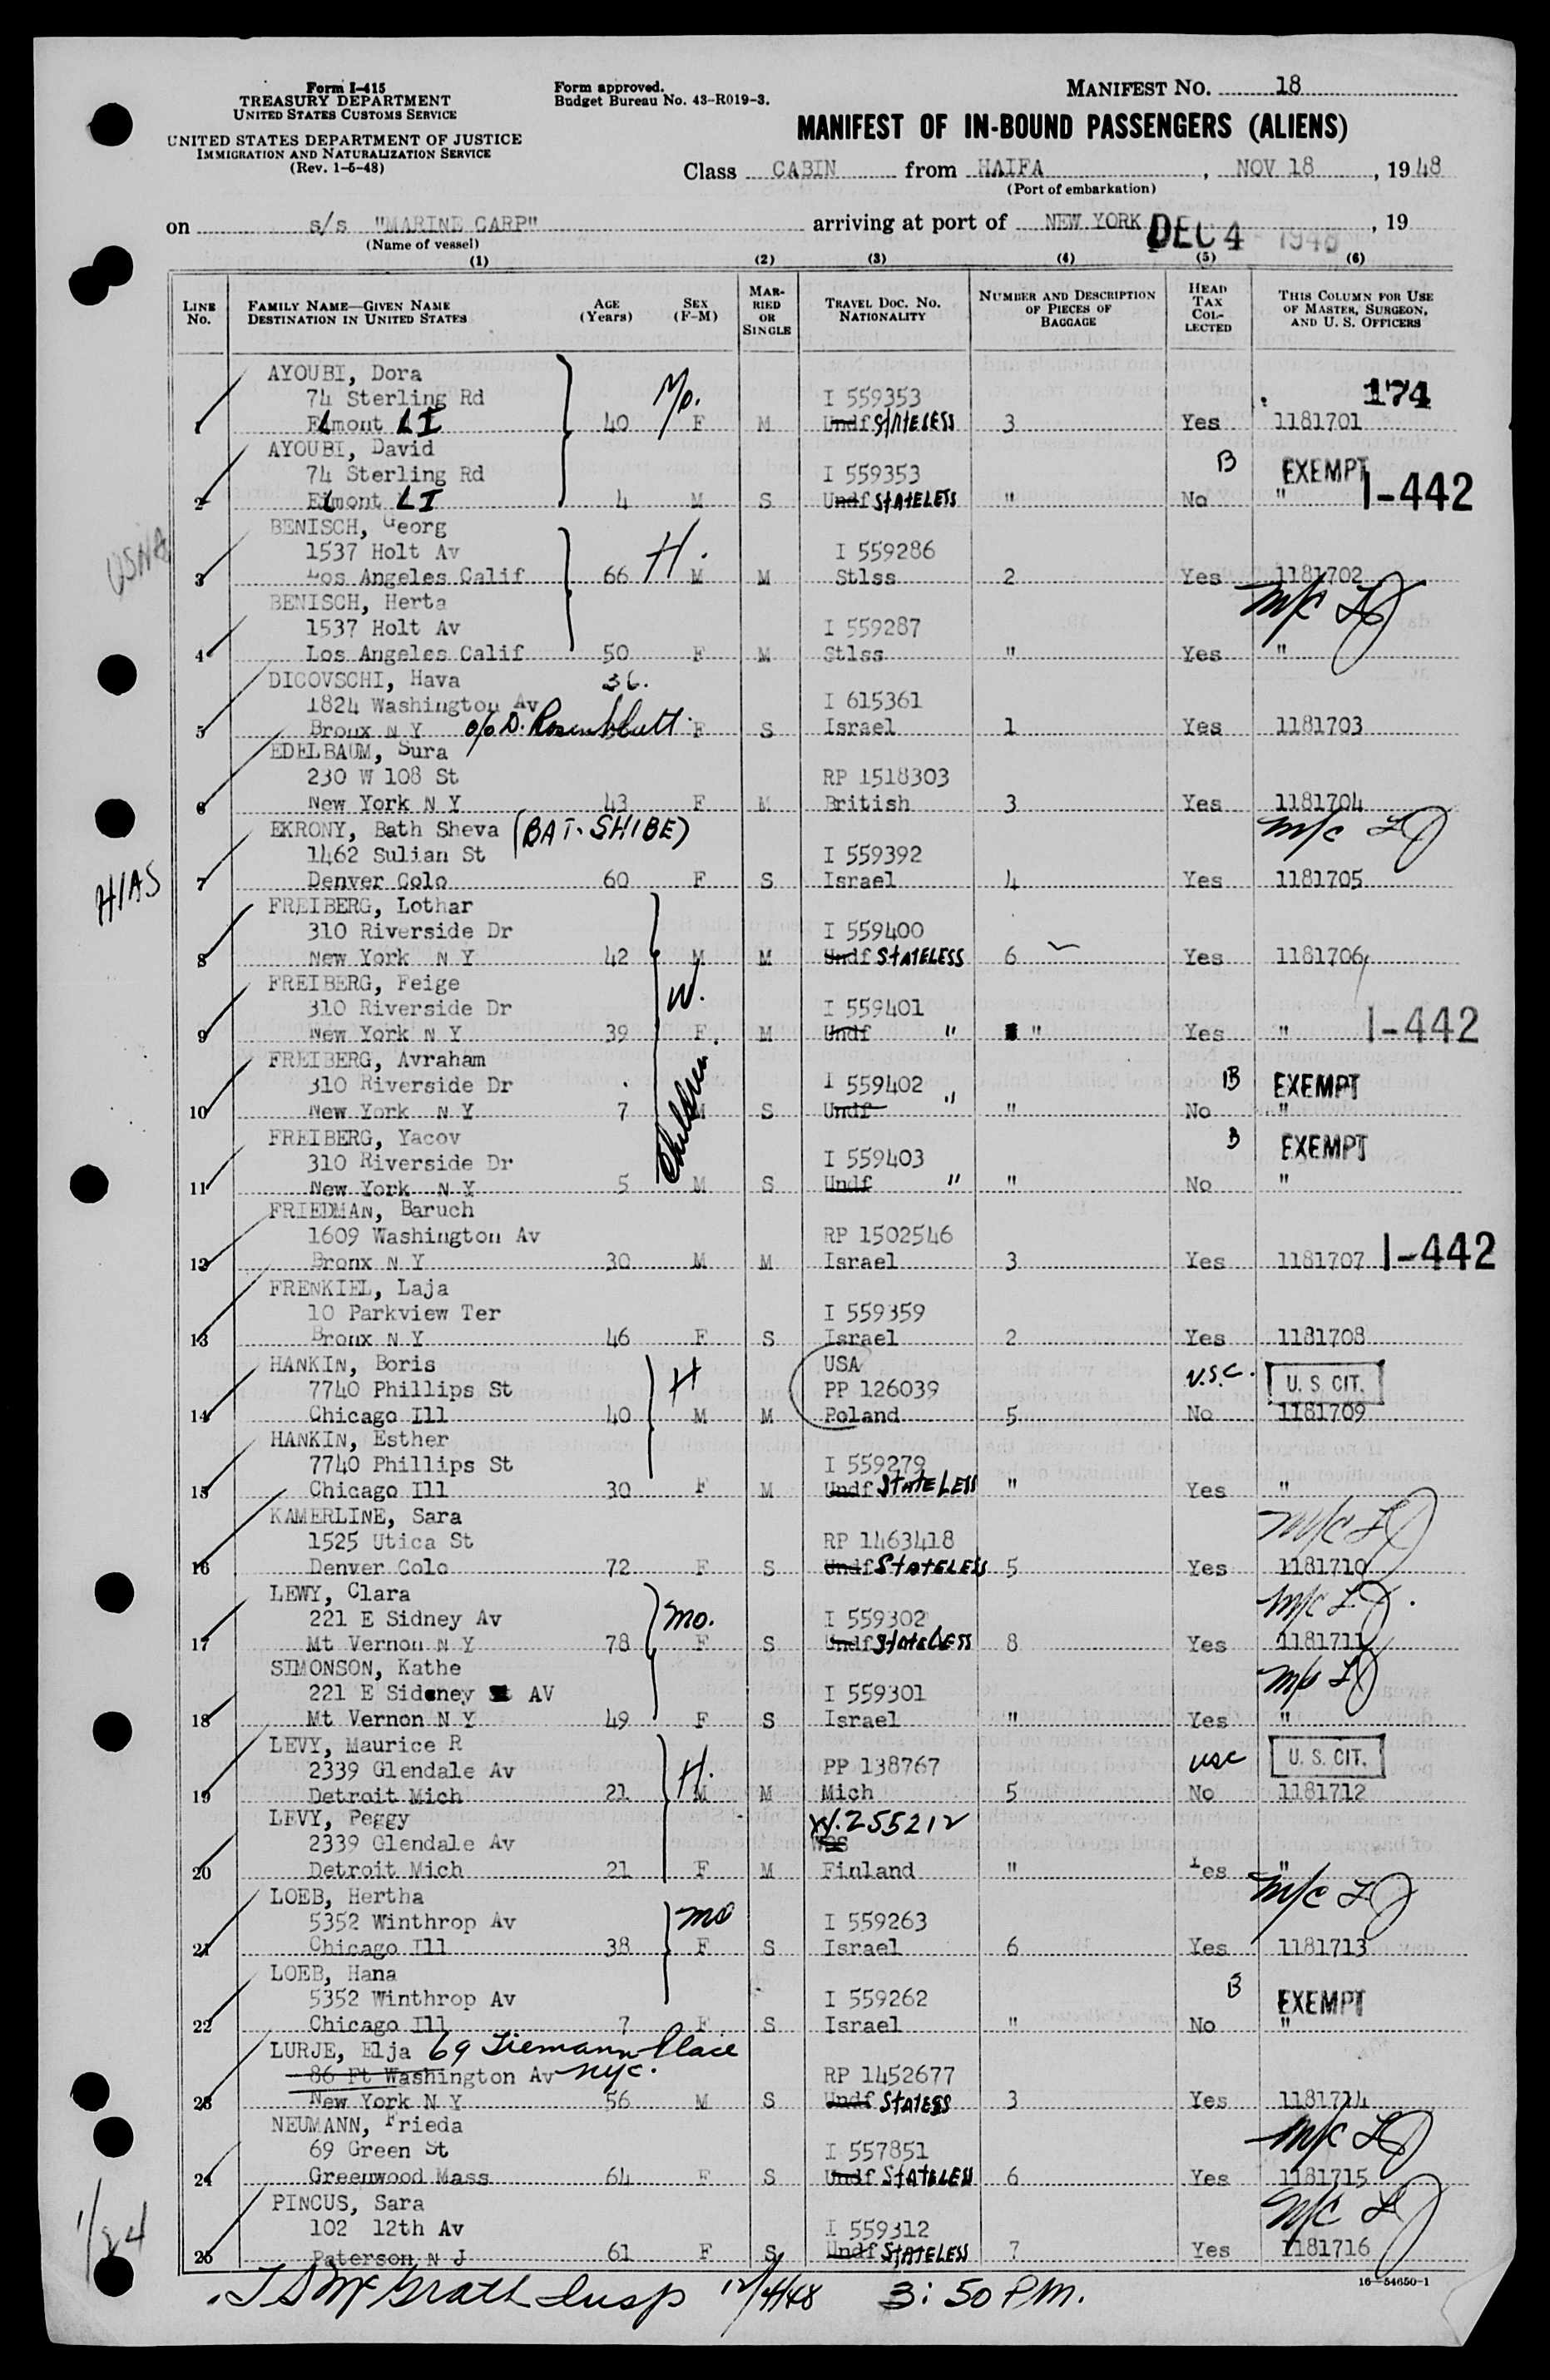 Form I-415
TREASURY DEPARTMENT
UNITED STATES CUSTOMS SERVICE
UNITED STATES DEPARTMENT OF JUSTICE
IMMIGRATION AND NATURALIZATION SERVICE
(Rev. 1-5-48)
Form approved.
Budget Bureau No. 43-R019-3.
MANIFEST No. 18
MANIFEST OF IN-BOUND PASSENGERS (ALIENS)
Class CABIN from HAIFA, NOV 18, 1948
(Port of embarkation)
on s/s "MARINE CARP" arriving at port of NEW YORK DEC 4 - 1948, 19
(Name of vessel)
(1) (2) (3) (4) (5) (6)
LINE No.
FAMILY NAME—GIVEN NAME
DESTINATION IN UNITED STATES
AGE (Years)
SEX (F-M)
MARRIED OR SINGLE
TRAVEL DOC. NO. NATIONALITY
NUMBER AND DESCRIPTION OF PIECES OF BAGGAGE
HEAD TAX COLLECTED
THIS COLUMN FOR USE OF MASTER, SURGEON, AND U. S. OFFICERS
AYOUBI, Dora Mo.
74 Sterling Rd I 559353 174
1 Elmont LI 40 F M Undf STATELESS 3 Yes 1181701
AYOUBI, David B EXEMPT
74 Sterling Rd I 559353
2 Elmont LI 4 M S Undf STATELESS " No " I-442
BENISCH, Georg H.
1537 Holt Av I 559286
USNA 3 Los Angeles Calif 66 M M Stlss 2 Yes 1181702
BENISCH, Herta m/c
1537 Holt Av I 559287
4 Los Angeles Calif 50 F M Stlss " Yes "
DICOVSCHI, Hava 36.
1824 Washington Av I 615361
5 Bronx N Y c/o D. Rosenblutt F S Israel 1 Yes 1181703
EDELBAUM, Sura
230 W 108 St RP 1518303
6 New York N Y 43 F M British 3 Yes 1181704
EKRONY, Bath Sheva (BAT-SHIBE) m/c
1462 Sulian St I 559392
HIAS 7 Denver Colo 60 F S Israel 4 Yes 1181705
FREIBERG, Lothar
310 Riverside Dr I 559400
8 New York N Y 42 M M Undf STATELESS 6 Yes 1181706
FREIBERG, Feige W.
310 Riverside Dr I 559401
9 New York N Y 39 F. M Undf " " Yes " I-442
FREIBERG, Avraham Children
310 Riverside Dr I 559402 B EXEMPT
10 New York N Y 7 M S Undf " " No "
FREIBERG, Yacov B EXEMPT
310 Riverside Dr I 559403
11 New York N Y 5 M S Undf " " No "
FRIEDMAN, Baruch
1609 Washington Av RP 1502546
12 Bronx N Y 30 M M Israel 3 Yes 1181707 I-442
FRENKIEL, Laja
10 Parkview Ter I 559359
13 Bronx N Y 46 F S Israel 2 Yes 1181708
HANKIN, Boris H USA U.S.C. U. S. CIT.
7740 Phillips St PP 126039
14 Chicago Ill 40 M M Poland 5 No 1181709
HANKIN, Esther
7740 Phillips St I 559279
15 Chicago Ill 30 F M Undf STATELESS " Yes "
KAMERLINE, Sara m/c
1525 Utica St RP 1463418
16 Denver Colo 72 F S Undf STATELESS 5 Yes 1181710
LEWY, Clara m/c
221 E Sidney Av mo. I 559302
17 Mt Vernon N Y 78 F S Undf STATELESS 8 Yes 1181711
SIMONSON, Kathe m/c
221 E Sidney AV I 559301
18 Mt Vernon N Y 49 F S Israel " Yes "
LEVY, Maurice R USC U. S. CIT.
2339 Glendale Av H. PP 138767
19 Detroit Mich 21 M M Mich 5 No 1181712
LEVY, Peggy V.255212
2339 Glendale Av
20 Detroit Mich 21 F M Finland " Yes "
LOEB, Hertha mo m/c
5352 Winthrop Av I 559263
21 Chicago Ill 38 F S Israel 6 Yes 1181713
LOEB, Hana B EXEMPT
5352 Winthrop Av I 559262
22 Chicago Ill 7 F S Israel " No "
LURJE, Elja 69 Tiemann Place
86 Ft Washington Av NYC. RP 1452677
23 New York N Y 56 M S Undf STATESS 3 Yes 1181714
NEUMANN, Frieda m/c
69 Green St I 557851
24 Greenwood Mass 64 F S Undf STATELESS 6 Yes 1181715
PINCUS, Sara m/c
102 12th Av I 559312
25 Paterson N J 61 F S Undf STATELESS 7 Yes 1181716
16-54650-1
J S McGrath Insp 12/4/48 3:50 P.M.